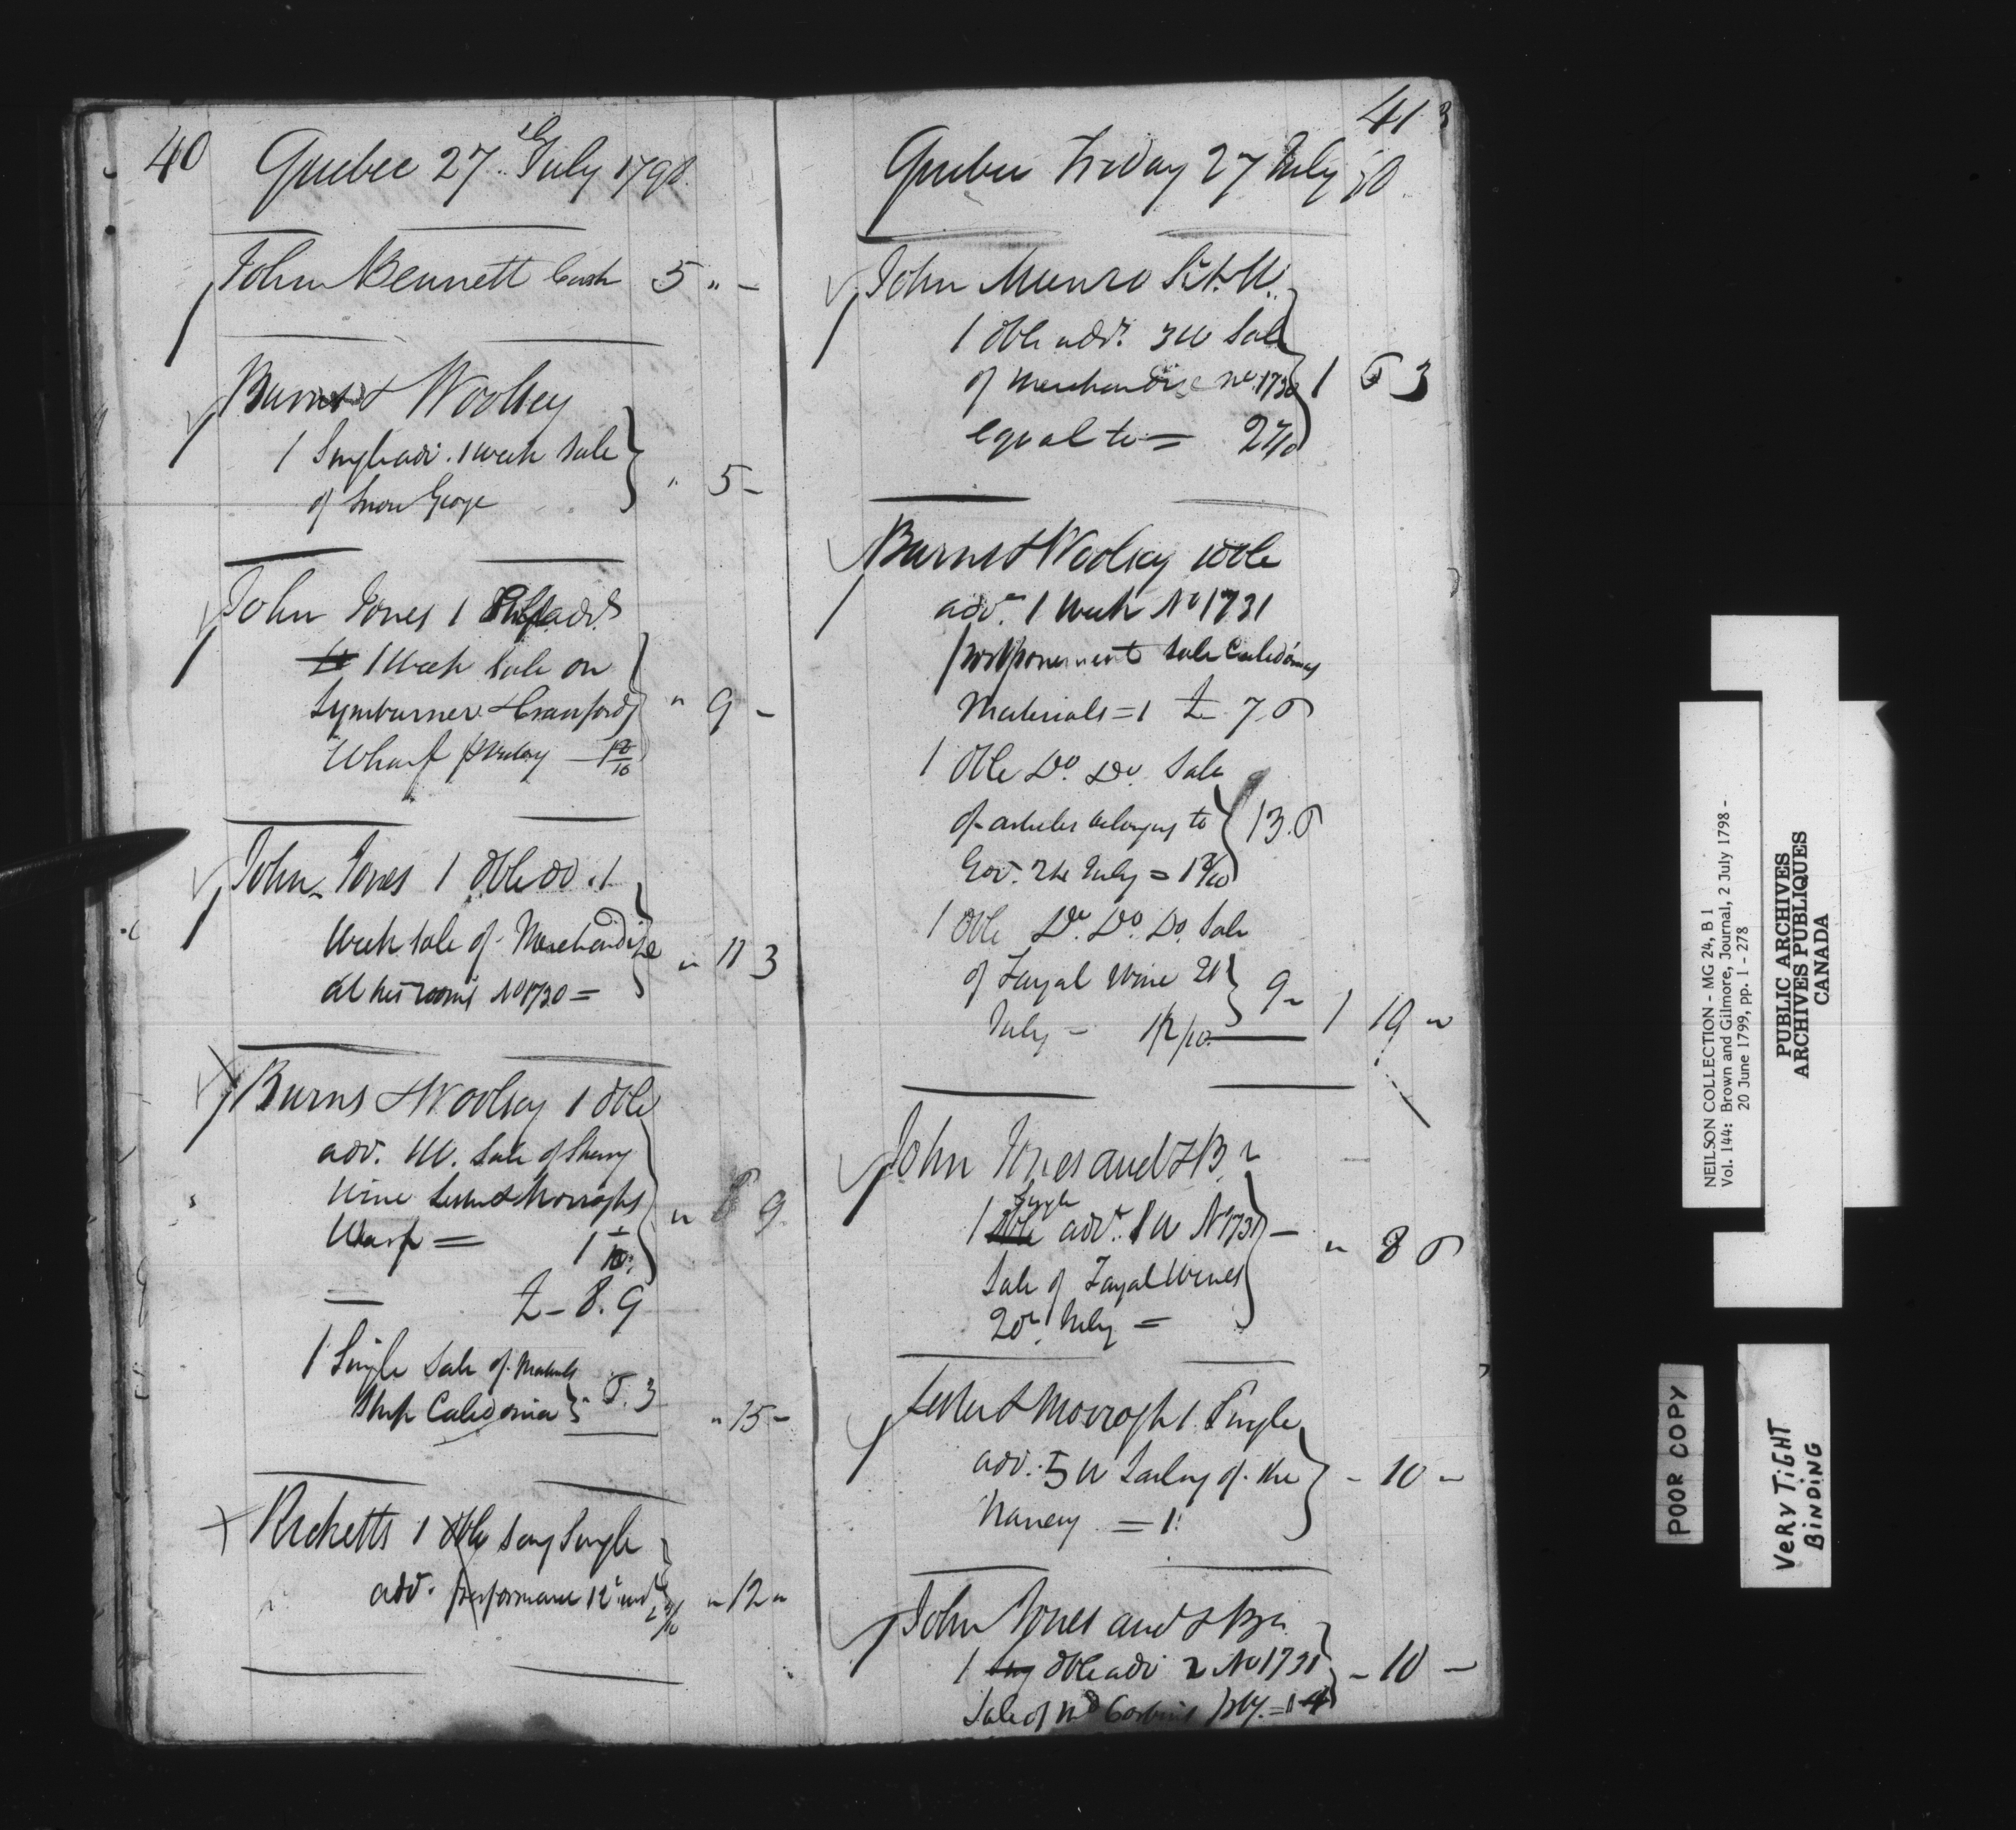 40
Quebec 27th July 1798.
John Bennett Cash 5 " -
Burns & Woolsey
1 Single adv. 1 week sale
of Snow George
" 5 -
John Jones 1 adv.
1 Week Sale on
Lymburner & Crawfords
Wharf
" 9 -
John Jones 1 dble do. 1
Week Sale of Merchandize
at his rooms No 1730 =
" 11 3
Burns & Woolsey 1 dble
adv. 1W. Sale of Sherry
Wine Lester & Morroghs
Wharf = 1
" 8 9
£ - 8. 9
1 Single Sale of Materials
Ship Caledonia - 6. 3
" 15 -
Ricketts 1 dble Song Single
adv. performance 12
" 12 "
41
Quebec Friday 27 July 98.
John Munro
1 dble adv. 3W Sale
of Merchandise No. 1730
equal to = 2 7/10
1 6 3
Burns & Woolsey 1 dble
adv. 1 Week No 1731
postponement Sale Caledonias
Materials = 1 £ - 7. 6
1 dble Do. Do. Sale
of articles belonging to
Gov. July =
13. 6
1 dble Do. Do. Do. Sale
of Fayal Wine 21
July -
9 "
1 19 "
John Jones and & B
Single
1 dble adv. 1W No 1731
Sale of Fayal Wines
20th July =
- " 8 6
Lester & Morrogh 1 Single
adv. 5W Sailing of the
Nancy = 1
- 10 -
John Jones and & Br
1 Sing dble adv 2 No 1731
Sale of
- 10 -
NEILSON COLLECTION - MG 24, B 1
Vol. 144: Brown and Gilmore, Journal, 2 July 1798 -
20 June 1799, pp. 1 - 278
PUBLIC ARCHIVES
ARCHIVES PUBLIQUES
CANADA
POOR COPY
VERY TIGHT
BINDING